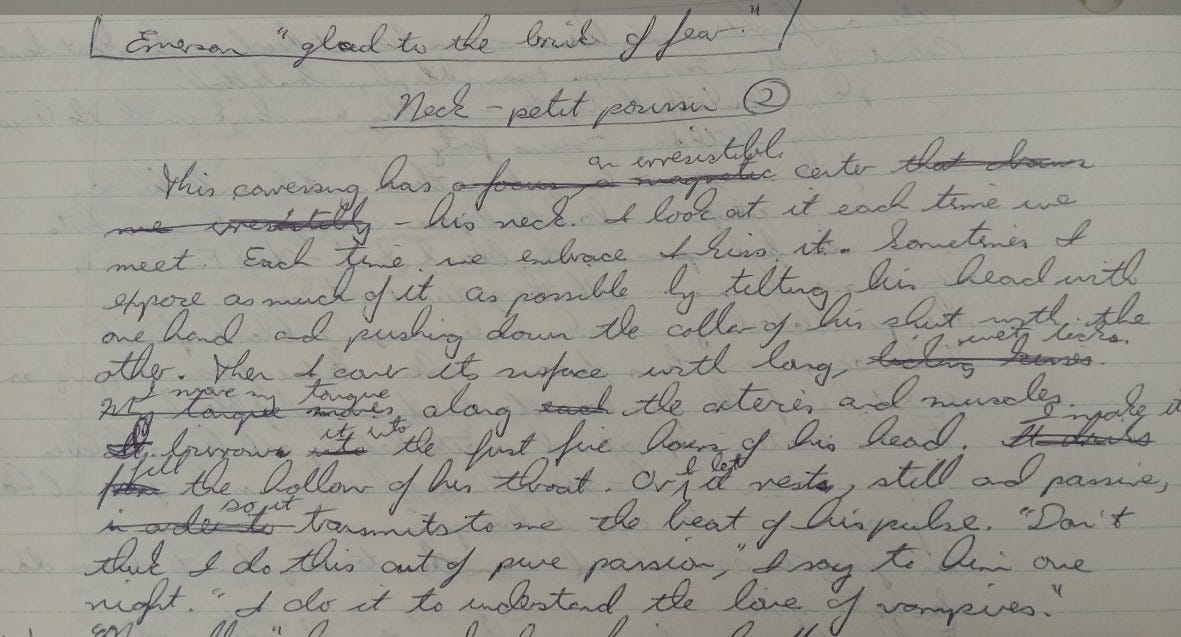 Emerson "glad to the brink of fear."
Neck - petit poussin ②
an irresistible
This caressing has a focus, a magnetic center that draws
me irresistibly - his neck. I look at it each time we
meet. Each time we embrace I kiss it. Sometimes I
expose as much of it as possible by tilting his head with
one hand and pushing down the collar of his shirt with the
wet licks.
other. Then I cover its surface with long, kisses.
I move my tongue
My tongue moves along each the arteries and muscles.
it into I make it
I burrow into the first fine hairs of his head. It draws
fill I let
the hollow of his throat. Or it rests, still and passive,
so it
in order to transmits to me the beat of his pulse. "Don't
think I do this out of pure passion," I say to him one
night. "I do it to understand the love of vampires."